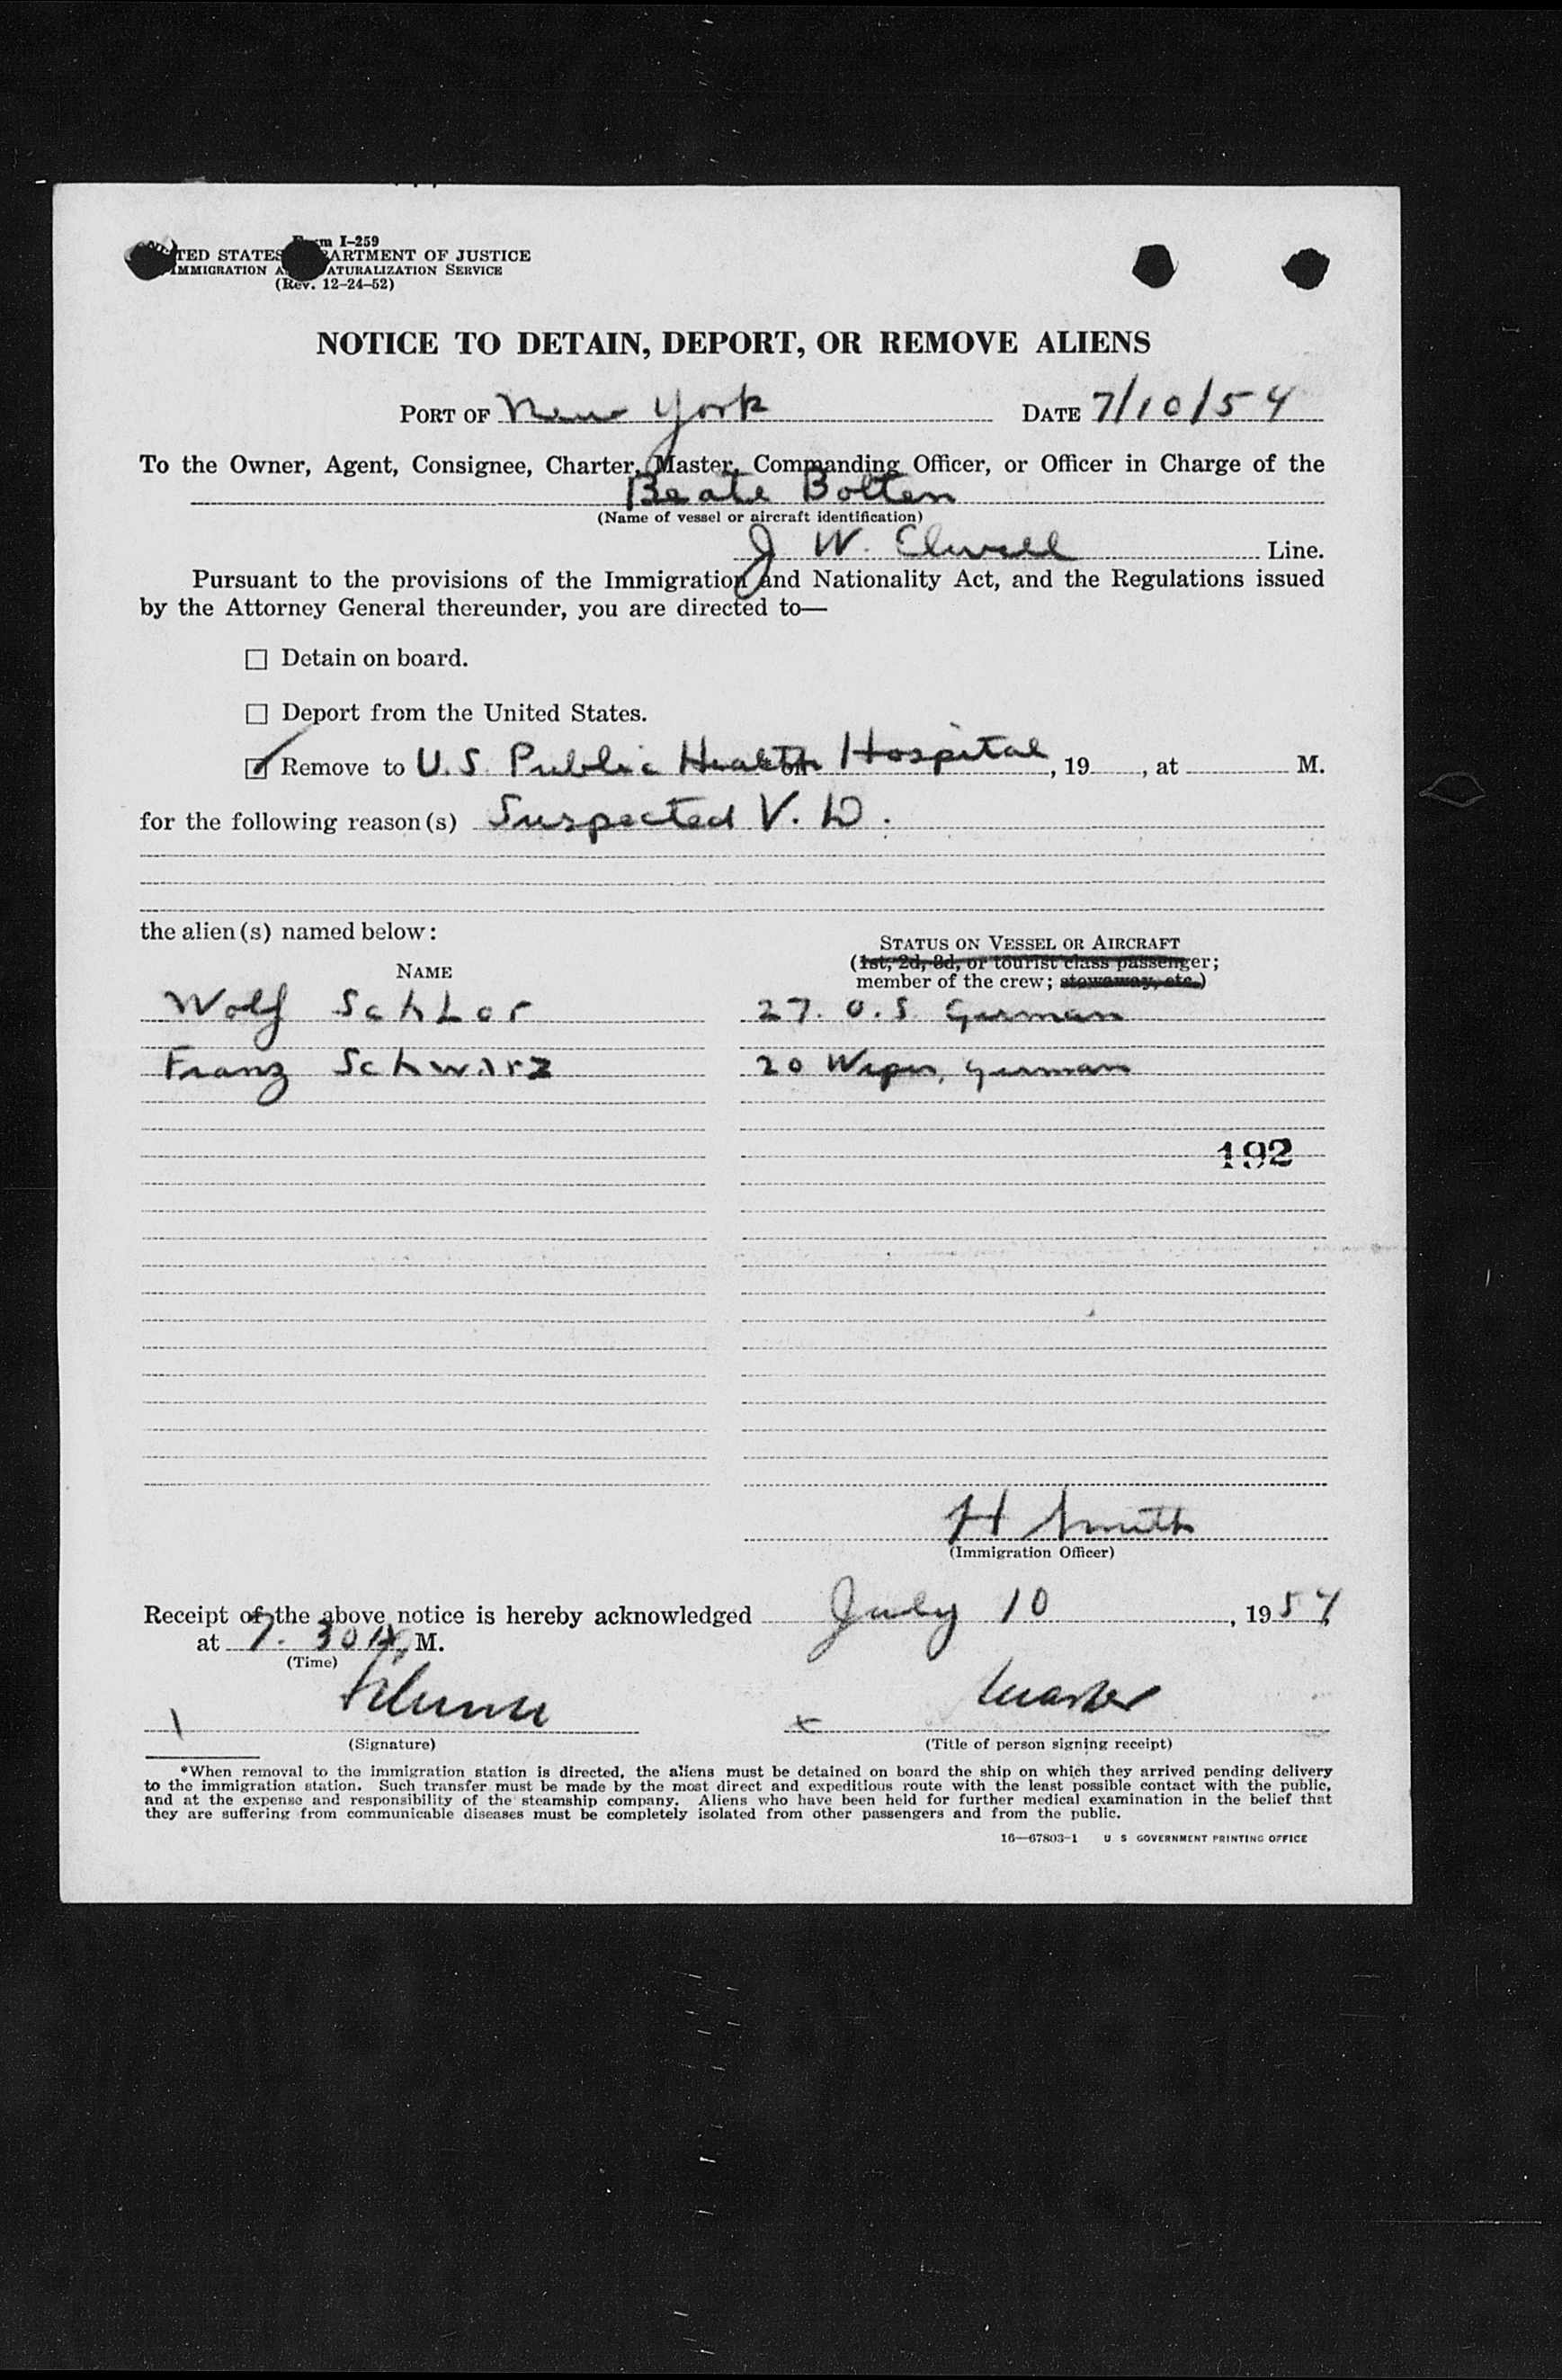 Form I-259
UNITED STATES DEPARTMENT OF JUSTICE
IMMIGRATION AND NATURALIZATION SERVICE
(Rev. 12-24-52)
NOTICE TO DETAIN, DEPORT, OR REMOVE ALIENS
PORT OF New York DATE 7/10/54
To the Owner, Agent, Consignee, Charter, Master, Commanding Officer, or Officer in Charge of the
Beate Bolten
(Name of vessel or aircraft identification)
J W. Elwell Line.
Pursuant to the provisions of the Immigration and Nationality Act, and the Regulations issued
by the Attorney General thereunder, you are directed to—
Detain on board.
Deport from the United States.
Remove to U.S. Public Health on Hospital, 19 , at M.
for the following reason(s) Suspected V. D.
the alien(s) named below:
STATUS ON VESSEL OR AIRCRAFT
NAME (1st, 2d, 3d, or tourist class passenger;
member of the crew; stowaway, etc.)
Wolf 27. O.S. German
Franz Schwarz 20 Wiper, German
192
H Smith
(Immigration Officer)
Receipt of the above notice is hereby acknowledged July 10, 1954
at 7. 30 A. M.
(Time)
Master
(Signature) (Title of person signing receipt)
*When removal to the immigration station is directed, the aliens must be detained on board the ship on which they arrived pending delivery
to the immigration station. Such transfer must be made by the most direct and expeditious route with the least possible contact with the public,
and at the expense and responsibility of the steamship company. Aliens who have been held for further medical examination in the belief that
they are suffering from communicable diseases must be completely isolated from other passengers and from the public.
16—67803-1 U S GOVERNMENT PRINTING OFFICE